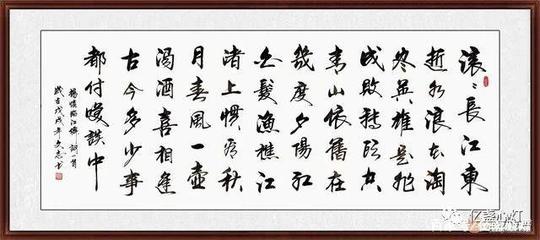 滚〻長江東
逝水浪花淘
尽英雄是非
成敗转頭空
青山依舊在
幾度夕陽红
白髮漁樵江
渚上惯看秋
月春風一壶
濁酒喜相逢
古今多少事
都付笑談中
楊慎臨江仙词一首
戊戌年文志书